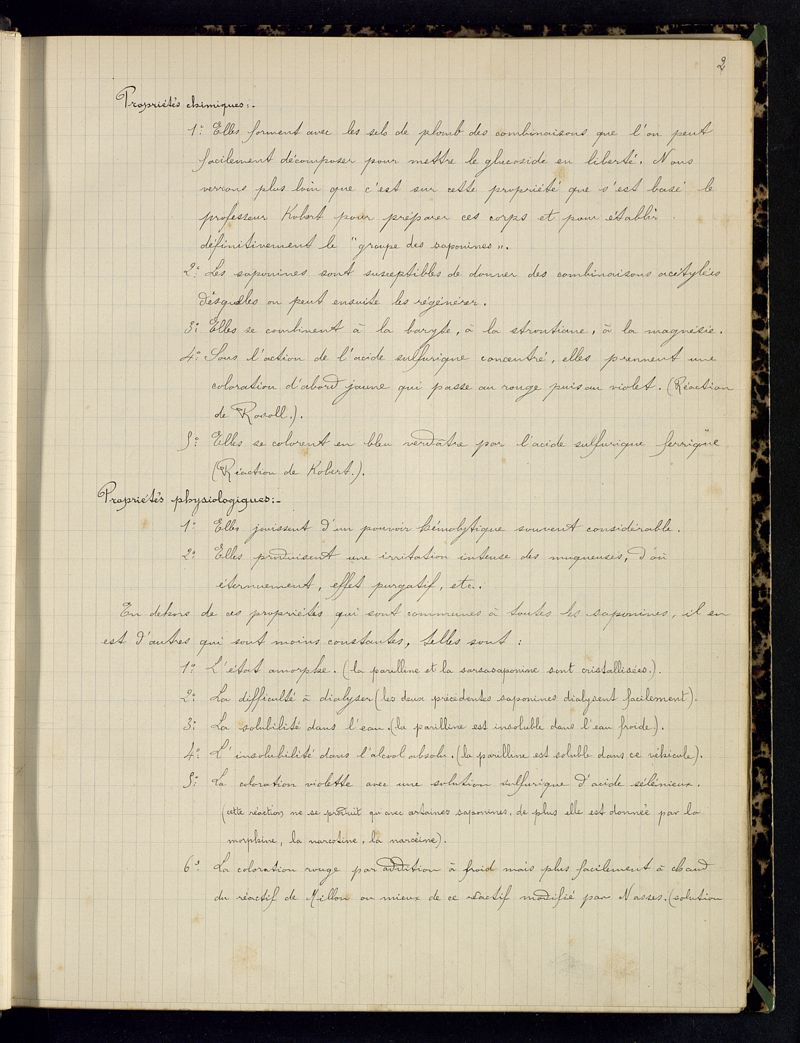 2
Propriétés chimiques :-
1° Elles forment avec les sels de plomb des combinaisons que l'on peut
facilement décomposer pour mettre le glucoside en liberté. Nous
verrons plus loin que c'est sur cette propriété que s'est basé le
professeur Kobert pour préparer ces corps et pour établir
définitivement le "groupe des saponines".
2° Les saponines sont susceptibles de donner des combinaisons acétylées
desquelles on peut ensuite les régénérer.
3° Elles se combinent à la baryte, à la strontiane, à la magnésie.
4° Sous l'action de l'acide sulfurique concentré, elles prennent une
coloration d'abord jaune qui passe au rouge puis au violet. (Réaction
de Rosoll.).
5° Elles se colorent en bleu verdâtre par l'acide sulfurique ferrique
(Réaction de Kobert.).
Propriétés physiologiques :-
1° Elles jouissent d'un pouvoir hémolytique souvent considérable.
2° Elles produisent une irritation intense des muqueuses, d'où
éternuement, effet purgatif, etc..
En dehors de ces propriétés qui sont communes à toutes les saponines, il en
est d'autres qui sont moins constantes, telles sont :
1° L'état amorphe. (la parilline et la sarsasaponine sont cristallisées.).
2° La difficulté à dialyser (les deux précédentes saponines dialysent facilement).
3° La solubilité dans l'eau. (la parilline est insoluble dans l'eau froide.).
4° L'insolubilité dans l'alcool absolu. (la parilline est soluble dans ce véhicule).
5° La coloration violette avec une solution sulfurique d'acide sélénieux.
(cette réaction ne se produit qu'avec certaines saponines, de plus elle est donnée par la
morphine, la narcotine, la narcéine).
6° La coloration rouge par addition à froid mais plus facilement à chaud
du réactif de Millon ou mieux de ce réactif modifié par Nasses. (solution